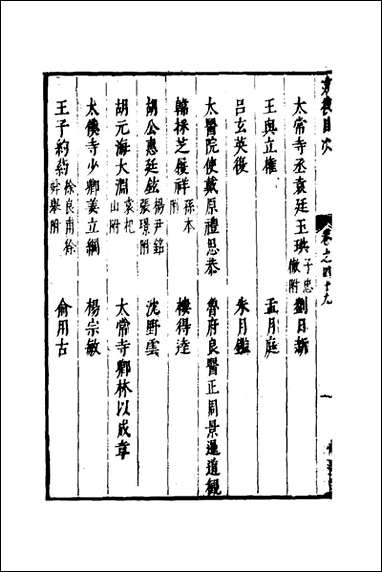 目次 卷之四十九 一
太常寺丞袁廷玉珙子忠徹附 劉日新
王奐立權 孟月庭
呂玄英後 朱月鑑
太醫院使戴原禮思恭 魯府良醫正周景暹道觀
韓採芝履祥孫本附 樓得達
胡公惠廷鉉楊尹銘張璟附 沈野雲
胡元海大淵袁杞山附 太常寺卿林以成章
太僕寺少卿姜立綱 楊宗敏
王子約約徐良甫徐舜舉附 俞用古